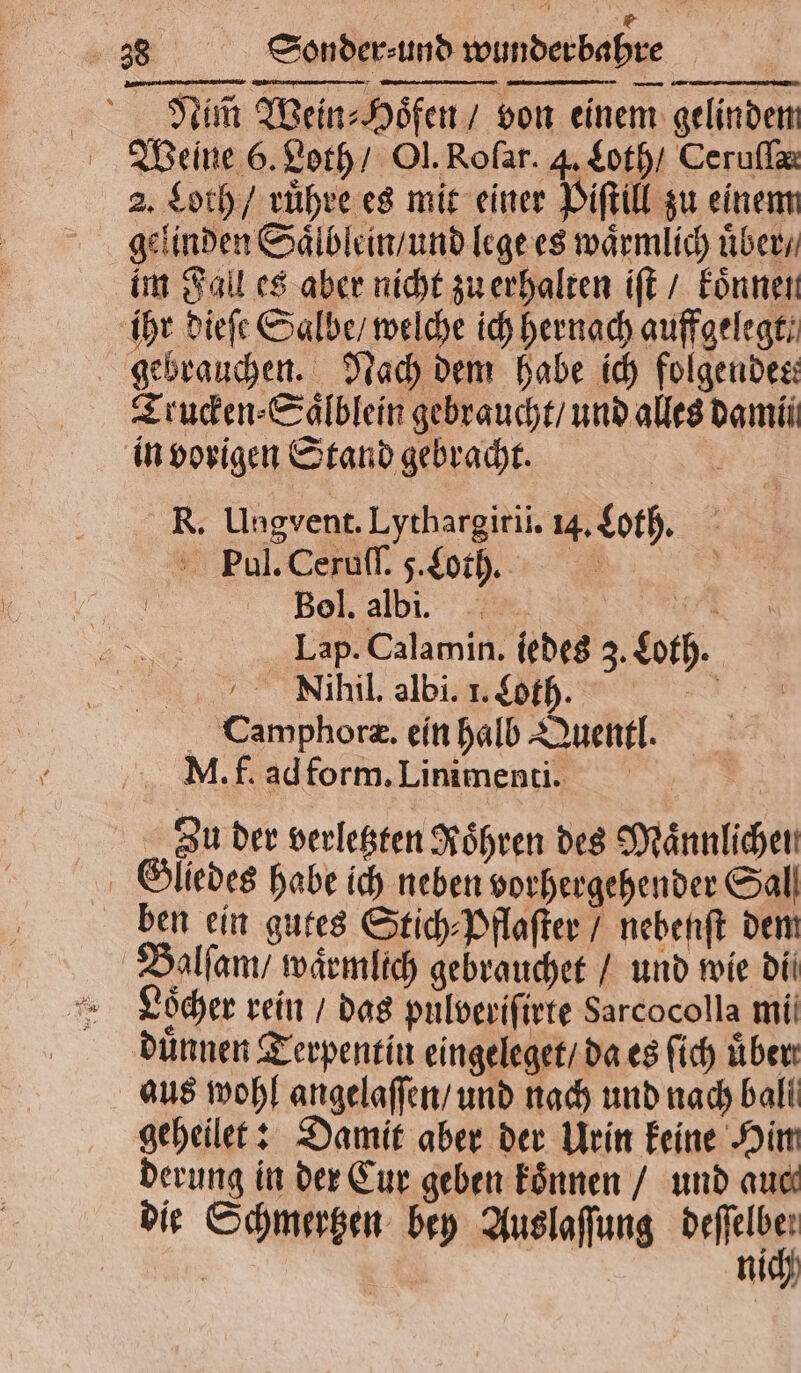 38 Sonder-und wunderbahre
Nim̃ Wein-Hoͤfen / von einem gelindem
Weine 6. Loth / Ol. Roſar. 4. Loth / Ceruſſæ
2. Loth / ruͤhre es mit einer Piſtill zu einem
gelinden Saͤlblein / und lege es waͤrmlich uͤber /
im Fall es aber nicht zu erhalten iſt / koͤnnen
ihr dieſe Salbe / welche ich hernach auffgelegt /
gebrauchen. Nach dem habe ich folgendes
Trucken-Saͤlblein gebraucht / und alles damit
in vorigen Stand gebracht.
R. Ungvent. Lythargirii. 14. Loth.
Pul. Ceruſſ. 5. Loth.
Bol. albi.
Lap. Calamin. iedes 3. Loth.
Nihil. albi. 1. Loth.
Camphoræ. ein halb Quentl.
M. f. ad form. Linimenti.
Zu der verletzten Roͤhren des Maͤnnlichen
Gliedes habe ich neben vorhergehender Sal-
ben ein gutes Stich-Pflaſter / nebenſt dem
Balſam / waͤrmlich gebrauchet / und wie die
Loͤcher rein / das pulveriſirte Sarcocolla mit
duͤnnen Terpentin eingeleget / da es ſich uͤber-
aus wohl angelaſſen / und nach und nach bald
geheilet: Damit aber der Urin keine Hin-
derung in der Cur geben koͤnnen / und auch
die Schmertzen bey Auslaſſung deſſelben
nich